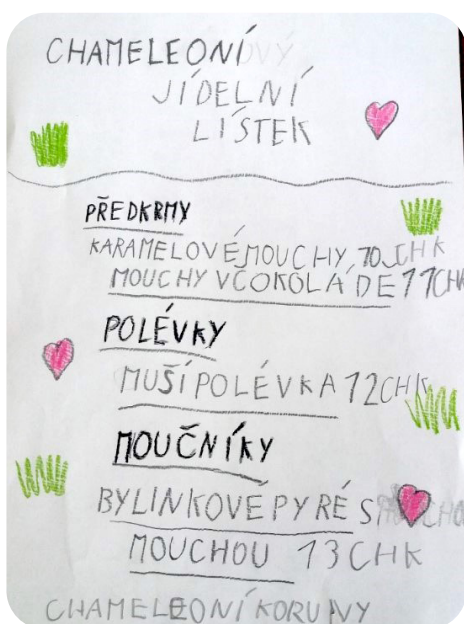 CHAMELEONÍ
JÍDELNÍ
LÍSTEK
PŘEDKRMY
KARAMELOVÉ MOUCHY 10 CHK
MOUCHY V ČOKOLÁDE 11 CHK
POLÉVKY
MUŠÍ POLÉVKA 12 CHK
MOUČNÍKY
BYLINKOVÉ PYRÉ S
MOUCHOU 13 CHK
CHAMELEONÍ KORUNY